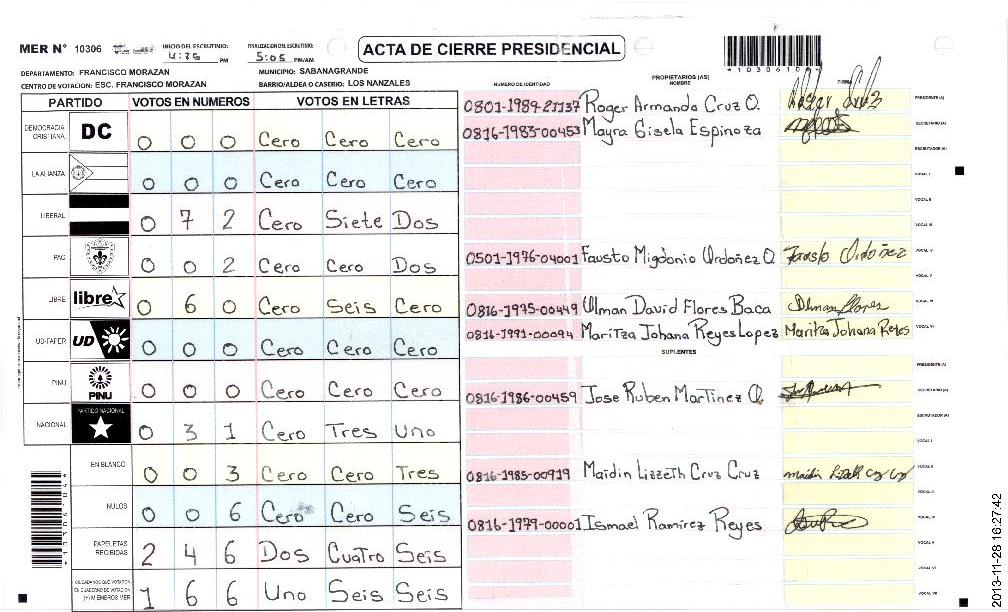 MER N° 10306
INICIO DEL ESCRUTINIO:
PM
FINALIZACION DEL ESCRUTINIO:
5:05 PM/AM
ACTA DE CIERRE PRESIDENCIAL
DEPARTAMENTO: FRANCISCO MORAZAN
MUNICIPIO: SABANAGRANDE
CENTRO DE VOTACION: ESC. FRANCISCO MORAZAN
BARRIO/ALDEA O CASERIO: LOS NANZALES
NUMERO DE IDENTIDAD
PROPIETARIOS (AS)
NOMBRE
FIRMA
PARTIDO VOTOS EN NUMEROS VOTOS EN LETRAS
DEMOCRACIA CRISTIANA DC 0 0 0 Cero Cero Cero
LA ALIANZA 0 0 0 Cero Cero Cero
LIBERAL 0 7 2 Cero Siete Dos
PAC 0 0 2 Cero Cero Dos
LIBRE libre 0 6 0 Cero Seis Cero
UD-FAPER UD 0 0 0 Cero Cero Cero
PINU PINU 0 0 0 Cero Cero Cero
NACIONAL PARTIDO NACIONAL 0 3 1 Cero Tres Uno
EN BLANCO 0 0 3 Cero Cero Tres
NULOS 0 0 6 Cero Cero Seis
PAPELETAS RECIBIDAS 2 4 6 Dos Cuatro Seis
CIUDADANOS QUE VOTARON EN CUADERNO DE VOTACION (+) MIEMBROS MER 1 6 6 Uno Seis Seis
Roger Armando Cruz O. PRESIDENTE (A)
0816-1983-00453 Mayra Gisela Espinoza SECRETARIO (A)
ESCRUTADOR (A)
VOCAL I
VOCAL II
VOCAL III
0501-1976-04001 Fausto Migdonio Ordoñez O. Fausto Ordoñez VOCAL IV
VOCAL V
0816-1975-00449 Ulman David Flores Baca Ulman Flores VOCAL VI
0816-1991-00094 Maritza Johana Reyes Lopez Maritza Johana Reyes VOCAL VII
SUPLENTES
PRESIDENTE (A)
0816-1986-00459 Jose Ruben Martinez O. SECRETARIO (A)
ESCRUTADOR (A)
VOCAL I
0816-1985-00919 Maidin Lizzeth Cruz Cruz VOCAL II
VOCAL III
0816-1979-00001 Ismael Ramirez Reyes VOCAL IV
VOCAL V
VOCAL VI
VOCAL VII
2013-11-28 16:27:42